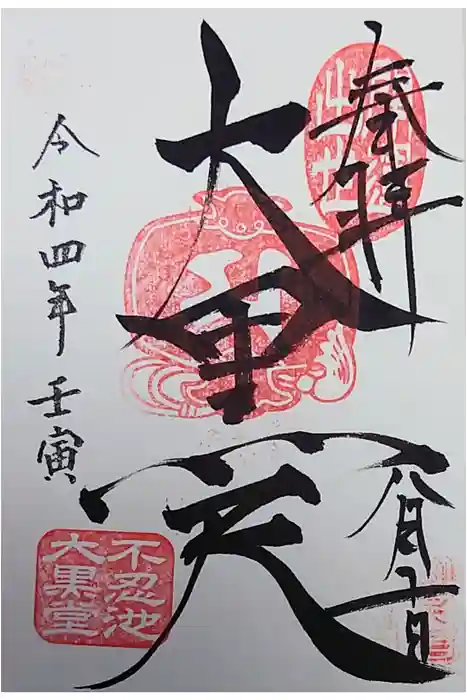 奉拝
八月十日
大黒天
令和四年 壬寅
不忍池
大黒堂